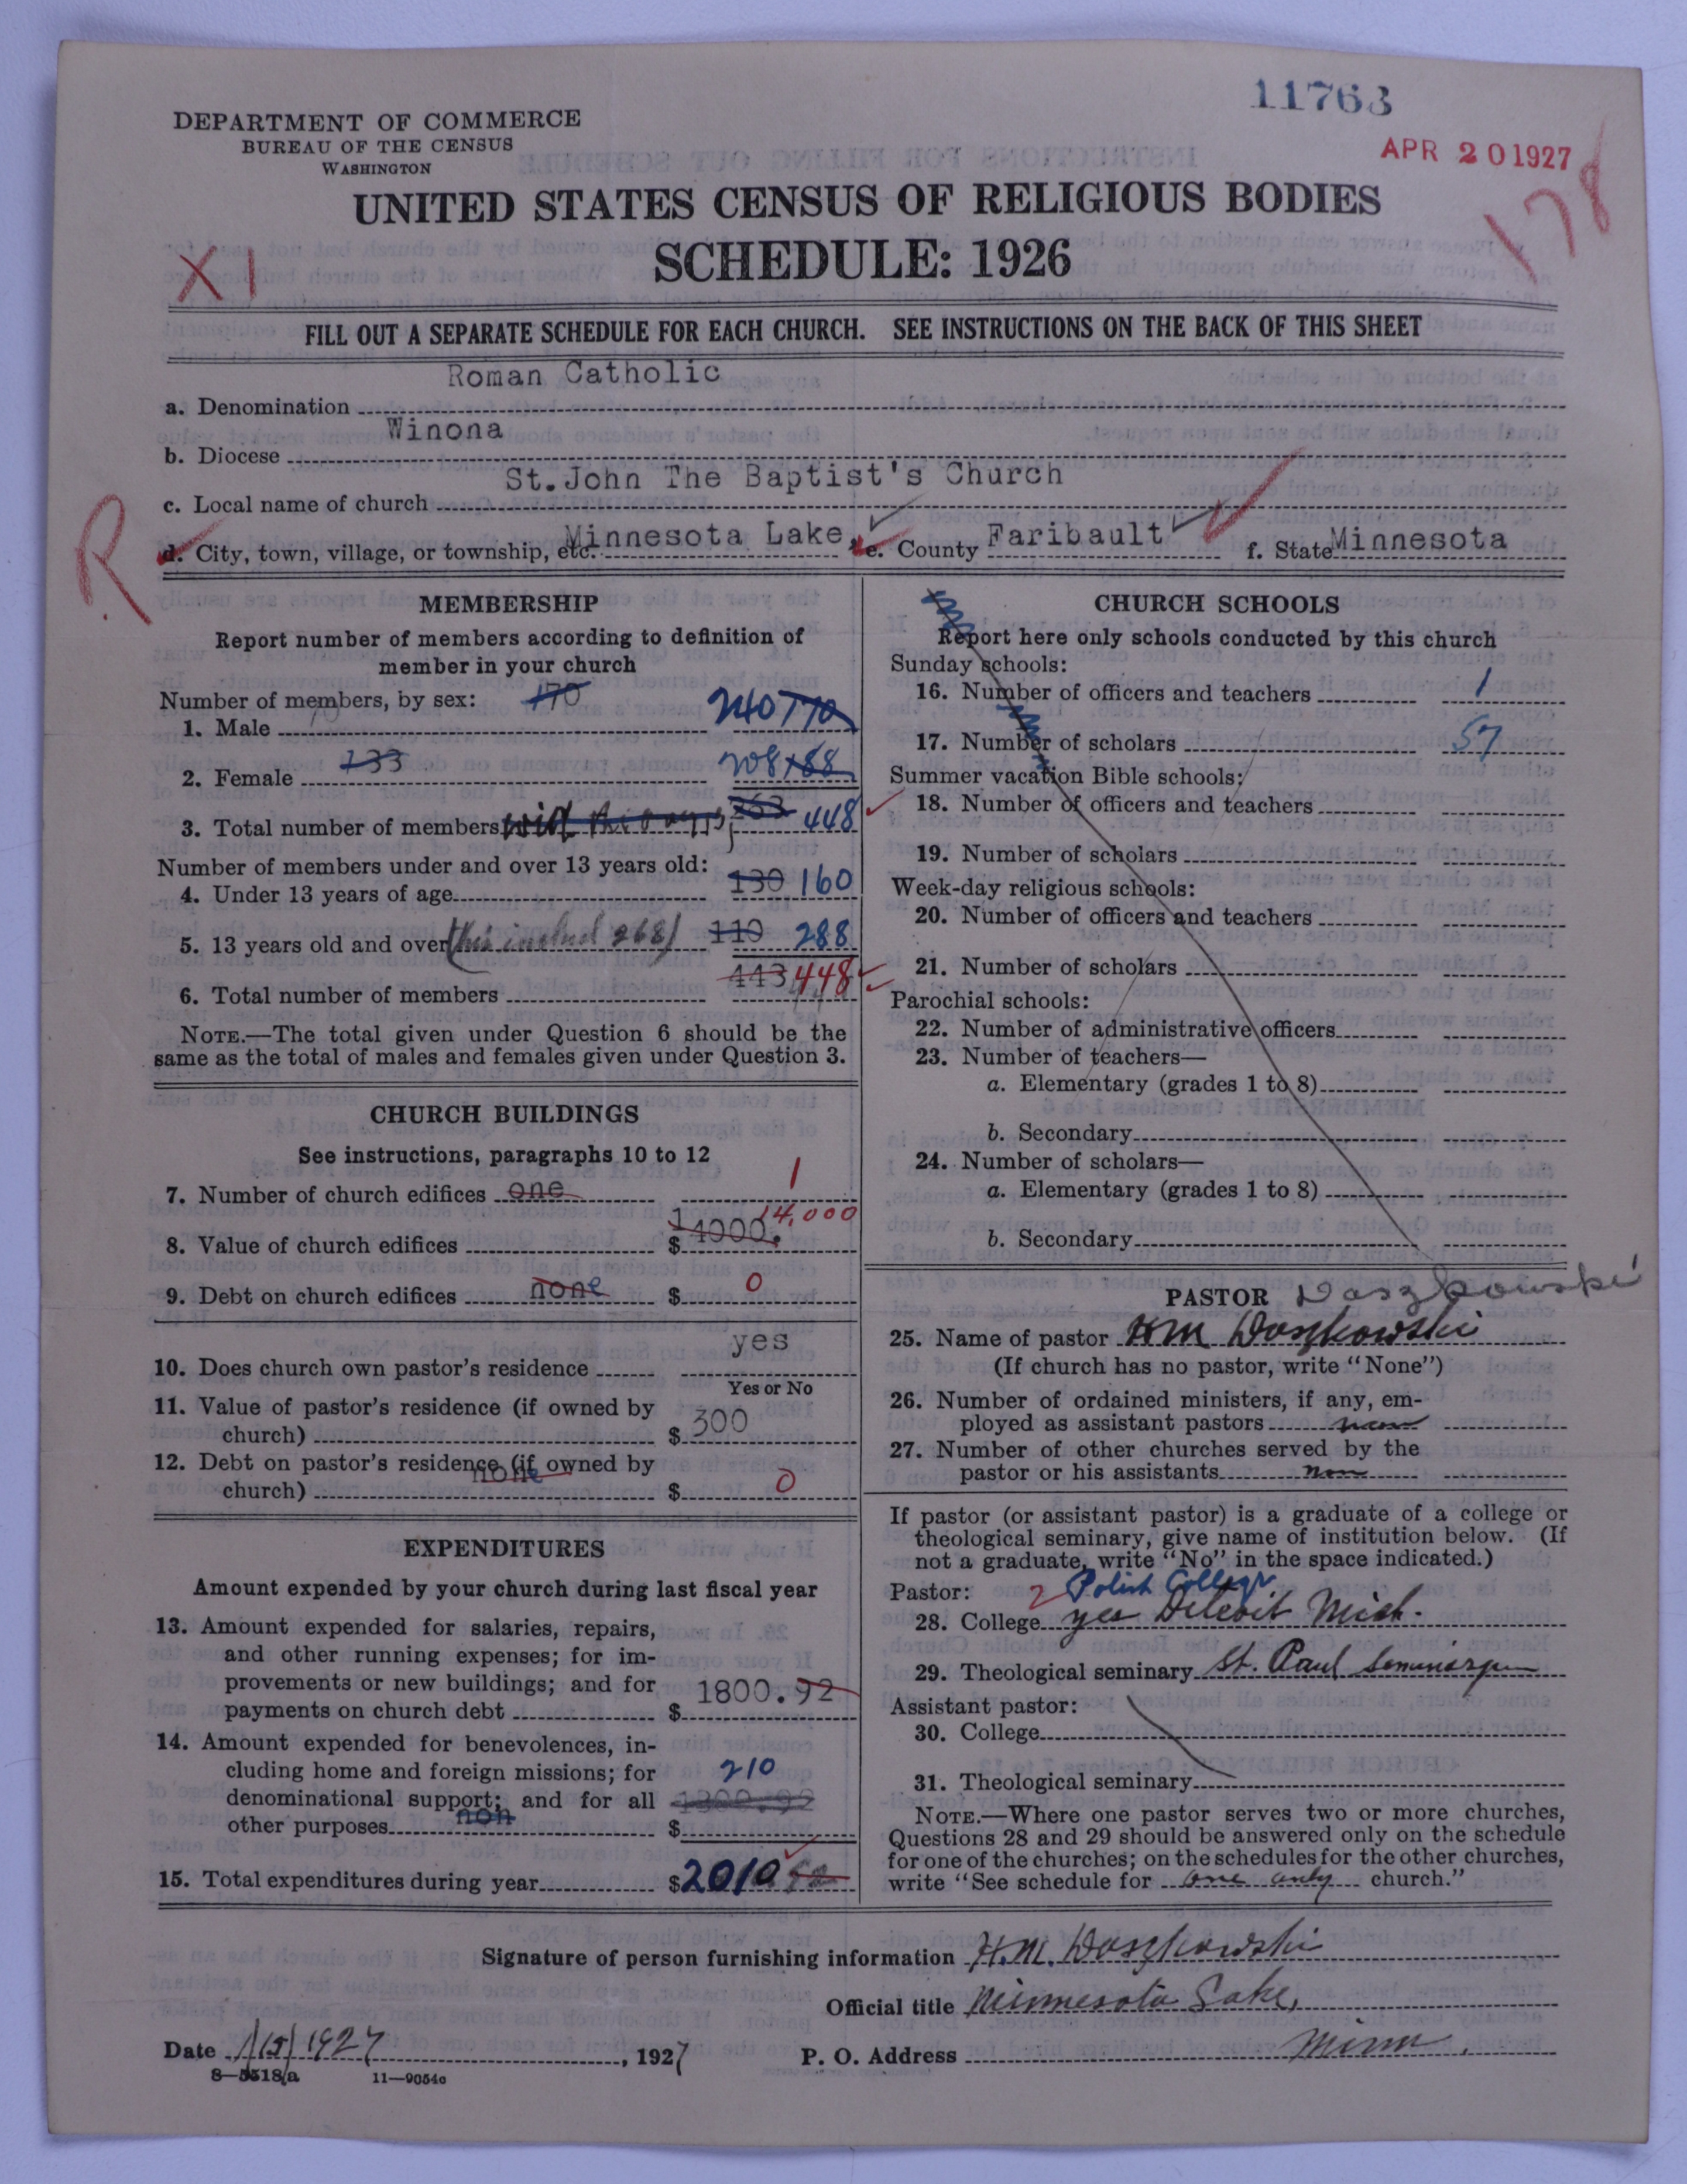 11763
APR 20 1927
178
DEPARTMENT OF COMMERCE
BUREAU OF THE CENSUS
WASHINGTON
UNITED STATES CENSUS OF RELIGIOUS BODIES
SCHEDULE: 1926
XI
FILL OUT A SEPARATE SCHEDULE FOR EACH CHURCH. SEE INSTRUCTIONS ON THE BACK OF THIS SHEET
a. Denomination Roman Catholic
b. Diocese Winona
c. Local name of church St.John The Baptist's Church
R
d. City, town, village, or township, etc. Minnesota Lake, e. County Faribault f. State Minnesota
MEMBERSHIP
Report number of members according to definition of
member in your church
Number of members, by sex: 170
1. Male 240 170
2. Female 133 208 188
3. Total number of members 263 448
Number of members under and over 13 years old:
4. Under 13 years of age 130 160
5. 13 years old and over (this includ 268) 110 288
6. Total number of members 443 448
NOTE.—The total given under Question 6 should be the
same as the total of males and females given under Question 3.
CHURCH BUILDINGS
See instructions, paragraphs 10 to 12
7. Number of church edifices one 1
8. Value of church edifices $ 14000. 14,000
9. Debt on church edifices none $ 0
10. Does church own pastor's residence yes
Yes or No
11. Value of pastor's residence (if owned by
church) $ 300
12. Debt on pastor's residence (if owned by
church) none $ 0
EXPENDITURES
Amount expended by your church during last fiscal year
13. Amount expended for salaries, repairs,
and other running expenses; for im-
provements or new buildings; and for
payments on church debt $ 1800.92
14. Amount expended for benevolences, in-
cluding home and foreign missions; for
denominational support; and for all
other purposes non $ 210 1800.92
15. Total expenditures during year $2010
CHURCH SCHOOLS
Report here only schools conducted by this church
Sunday schools:
16. Number of officers and teachers 1
17. Number of scholars 57
Summer vacation Bible schools:
18. Number of officers and teachers
19. Number of scholars
Week-day religious schools:
20. Number of officers and teachers
21. Number of scholars
Parochial schools:
22. Number of administrative officers
23. Number of teachers—
a. Elementary (grades 1 to 8)
b. Secondary
24. Number of scholars—
a. Elementary (grades 1 to 8)
b. Secondary
PASTOR Daszkowski
25. Name of pastor HM Daszkowski
(If church has no pastor, write "None")
26. Number of ordained ministers, if any, em-
ployed as assistant pastors none
27. Number of other churches served by the
pastor or his assistants none
If pastor (or assistant pastor) is a graduate of a college or
theological seminary, give name of institution below. (If
not a graduate, write "No" in the space indicated.)
Pastor: 2 Polish College
28. College yes Detroit Mich.
29. Theological seminary St. Paul Seminary
Assistant pastor:
30. College
31. Theological seminary
NOTE.—Where one pastor serves two or more churches,
Questions 28 and 29 should be answered only on the schedule
for one of the churches; on the schedules for the other churches,
write "See schedule for one only church."
Signature of person furnishing information H.M. Daszkowski
Official title Minnesota Lake,
Date 1/15/1927, 1927 P. O. Address Minn.
8—5518a 11—9054a